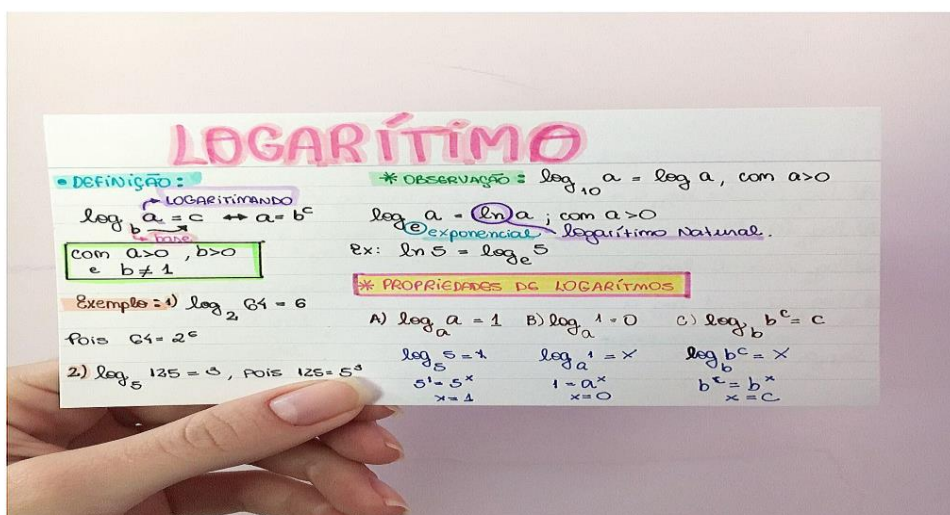 LOGARÍTIMO
• DEFINIÇÃO:
LOGARITIMANDO
log_b a = c ↔ a = b^c
base
com a>0, b>0
e b ≠ 1
Exemplo: 1) log_2 64 = 6
Pois 64 = 2^6
2) log_5 125 = 3, Pois 125 = 5^3
* OBSERVAÇÃO: log_10 a = log a, com a>0
log_e a = ln a; com a>0
exponencial logarítimo Natural.
Ex: ln 5 = log_e 5
* PROPRIEDADES DE LOGARÍTMOS
A) log_a a = 1 B) log_a 1 = 0 C) log_b b^c = c
log_5 5 = x log_a 1 = x log_b b^c = x
5^1 = 5^x 1 = a^x b^c = b^x
x = 1 x = 0 x = c